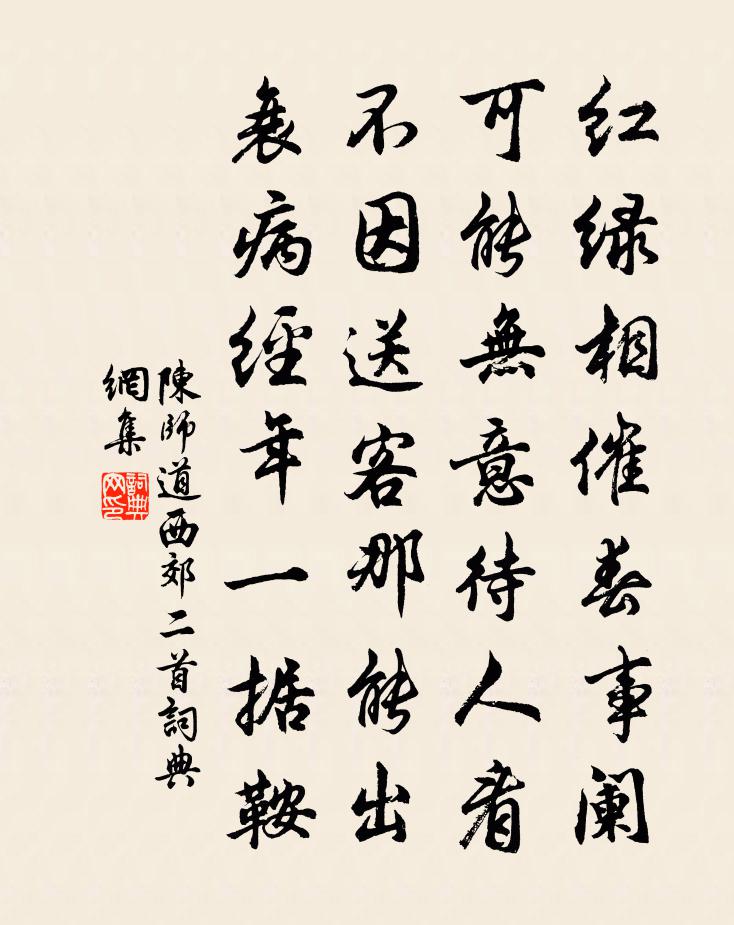 红绿相催春事阑
可能無意待人看
不因送客那能出
衰病經年一据鞍
陳師道西郊二首詞典
網集
詞典網印